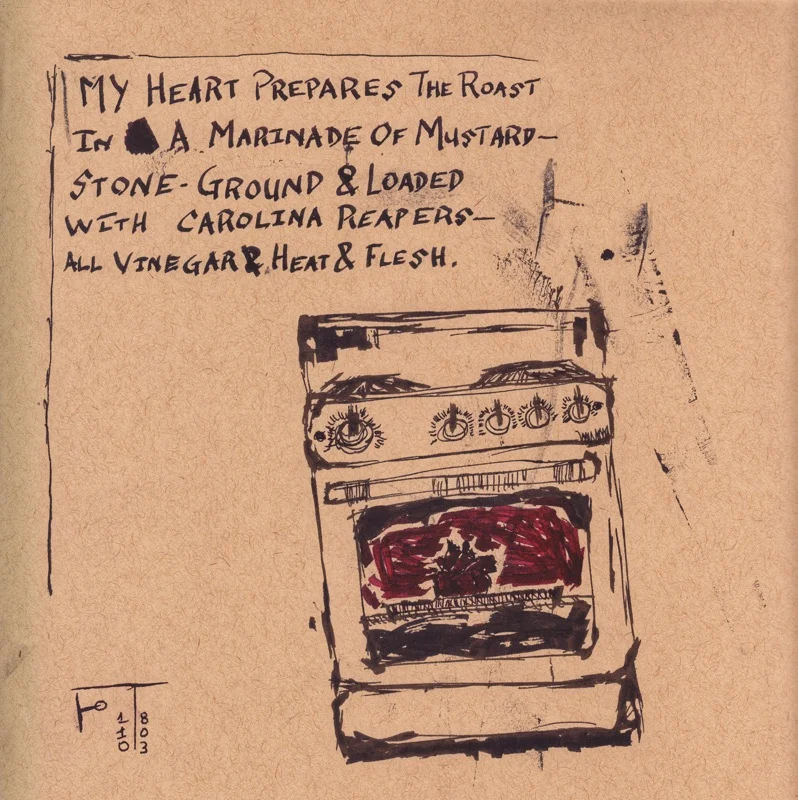 MY HEART PREPARES THE ROAST
IN A MARINADE OF MUSTARD—
STONE-GROUND & LOADED
WITH CAROLINA REAPERS—
ALL VINEGAR & HEAT & FLESH.
110
803